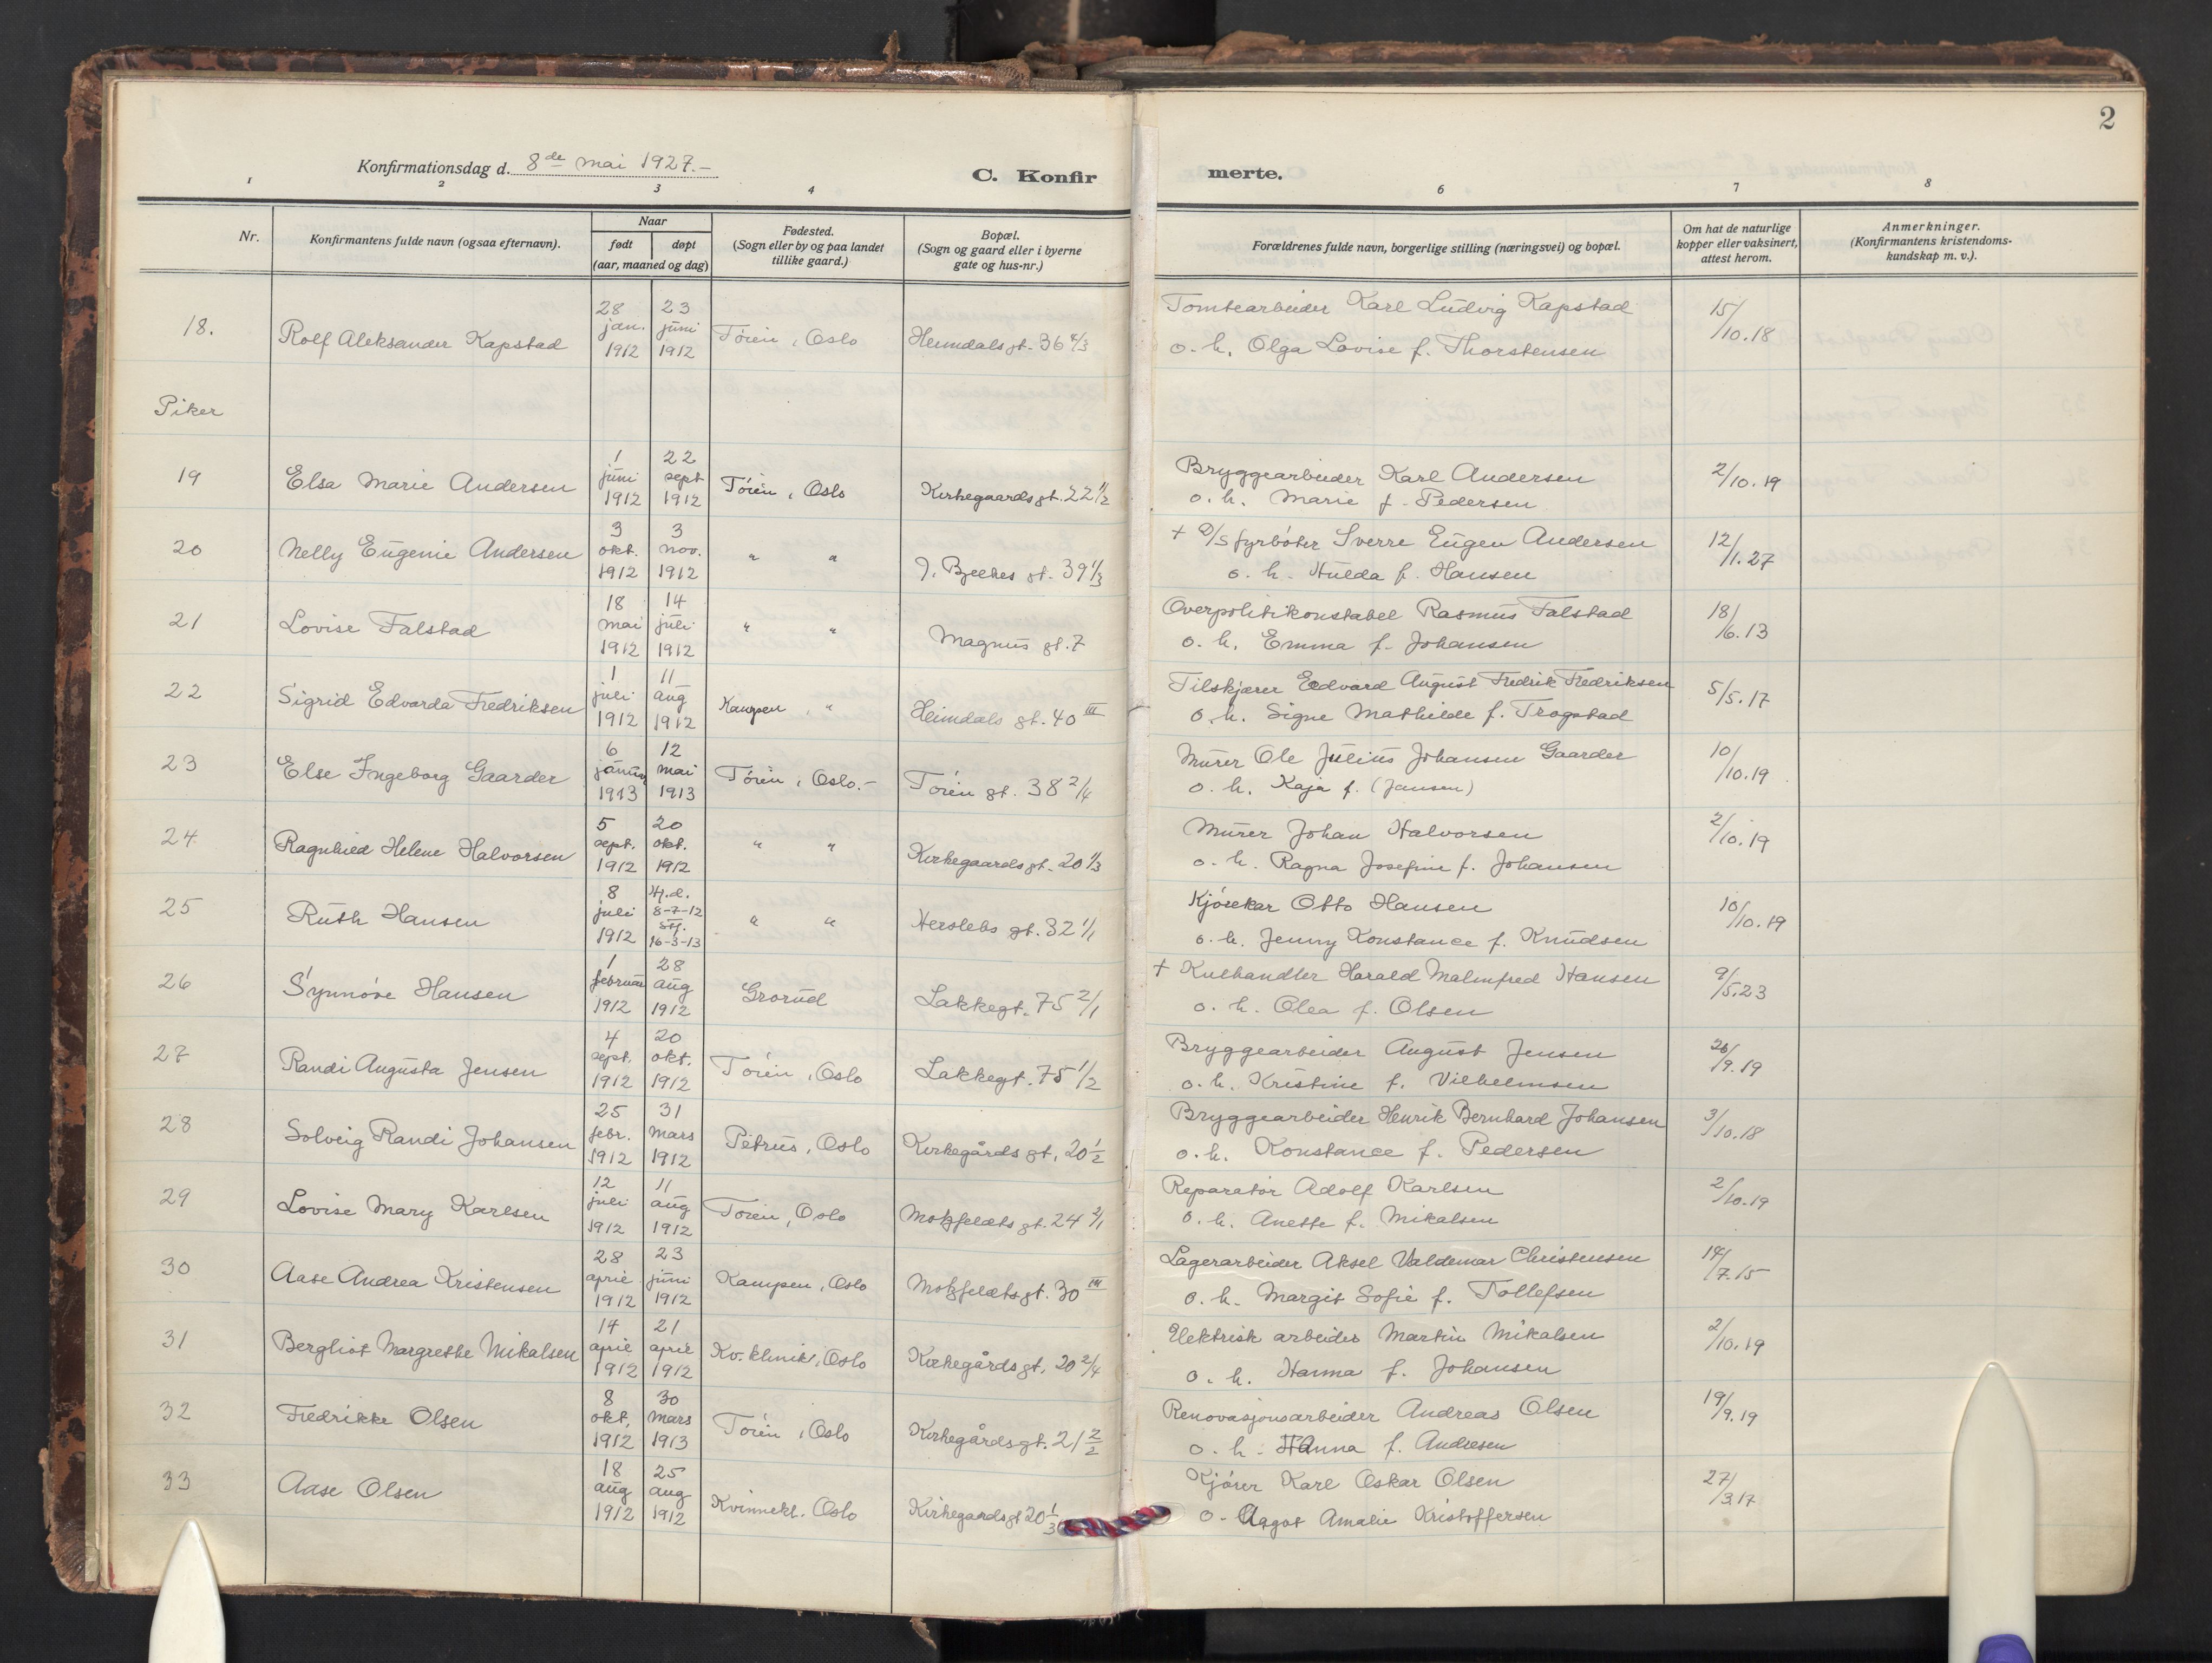 2
Konfirmationsdag d. 8de mai 1927.-
C. Konfir
merte.
1 2 3 4 6 7 8
Nr.
Konfirmantens fulde navn (ogsaa efternavn).
Naar
født
døpt
(aar, maaned og dag)
Fødested.
(Sogn eller by og paa landet
tillike gaard.)
Bopæl.
(Sogn og gaard eller i byerne
gate og hus-nr.)
Forældrenes fulde navn, borgerlige stilling (næringsvei) og bopæl.
Om hat de naturlige
kopper eller vaksinert,
attest herom.
Anmerkninger.
(Konfirmantens kristendoms-
kundskap m. v.).
18. Rolf Aleksander Kapstad 28 jan. 1912 23 juni 1912 Tøien, Oslo Heimdals gt. 36 4/3 Tomtearbeider Karl Ludvig Kapstad 15/10.18
o. h. Olga Lovise f. Thorstensen
Piker
19 Elsa Marie Andersen 1 juni 1912 22 sept 1912 Tøien, Oslo Kirkegaards gt. 22 1/2 Bryggearbeider Karl Andersen 2/10.19
o. h. Marie f. Pedersen
20 Nelly Eugenie Andersen 3 okt. 1912 3 nov. 1912 " " J. Bjelkes gt. 39 1/3 + D/S fyrbøter Sverre Eugen Andersen 12/1.27
o. h. Hulda f. Hansen
21 Lovise Falstad 18 mai 1912 14 juli 1912 " " Magnus gt. 7 Overpolitikonstabel Rasmus Falstad 18/6.13
o. h. Emma f. Johansen
22 Sigrid Edvarda Fredriksen 1 juli 1912 11 aug 1912 Kampen, " Heimdals gt. 40 III Tilskjærer Edvard August Fredrik Fredriksen 5/5.17
o. h. Signe Mathilde f. Trogstad
23 Else Ingeborg Gaarder 6 januar 1913 12 mai 1913 Tøien, Oslo.- Tøien gt. 38 2/4 Murer Ole Julius Johansen Gaarder 10/10.19
o. h. Kaja f. (Jansen)
24. Ragnhild Helene Halvorsen 5 sept. 1912 20 okt. 1912 " " Kirkegaards gt. 20 1/3 Murer Johan Halvorsen 2/10.19
o. h. Ragna Josefine f. Johansen
25 Ruth Hansen 8 juli 1912 Hj.d. 8-7-12 Stf. 16-3-13 " " Herslebs gt. 32 1/1 Kjørekar Otto Hansen 10/10.19
o. h. Jenny Konstance f. Knudsen
26 Synnøve Hansen 1 februar 1912 28 aug 1912 Grorud Lakkegt. 75 2/1 + Kulhandler Harald Malmfred Hansen 9/5.23
o. h. Olea f. Olsen
27 Randi Augusta Jensen 4 sept. 1912 20 okt. 1912 Tøien, Oslo Lakkegt. 75 1/2 Bryggearbeider August Jensen 26/9.19
o. h. Kristine f. Vilhelmsen
28 Solveig Randi Johansen 25 febr. 1912 31 mars 1912 Petrus, Oslo Kirkegårds gt. 20 1/2 Bryggearbeider Henrik Bernhard Johansen 3/10.18
o. h. Konstance f. Pedersen
29 Lovise Mary Karlsen 12 juli 1912 11 aug 1912 Tøien, Oslo Motzfeldts gt. 24 2/1 Reparatør Adolf Karlsen 2/10.19
o. h. Anette f. Mikalsen
30 Aase Andrea Kristensen 28 april 1912 23 juni 1912 Kampen, Oslo Motzfeldts gt. 30 III Lagerarbeider Aksel Valdemar Christensen 14/7.15
o. h. Margit Sofie f. Tollefsen
31 Bergliot Margrethe Mikalsen 14 april 1912 21 april 1912 Kv. klinik, Oslo Kirkegårds gt. 20 2/4 Elektrisk arbeider Martin Mikalsen 2/10.19
o. h. Hanna f. Johansen
32 Fredrikke Olsen 8 okt. 1912 30 mars 1913 Tøien, Oslo Kirkegårdsgt. 21 2/2 Renovasjonsarbeider Andreas Olsen 19/9.19
o. h. Hanna f. Andresen
33 Aase Olsen 18 aug 1912 25 aug 1912 Kvinnekl. Oslo Kirkegaards gt 20 1/3 Kjører Karl Oskar Olsen 27/3.17
o. Aagot Amalie Kristoffersen